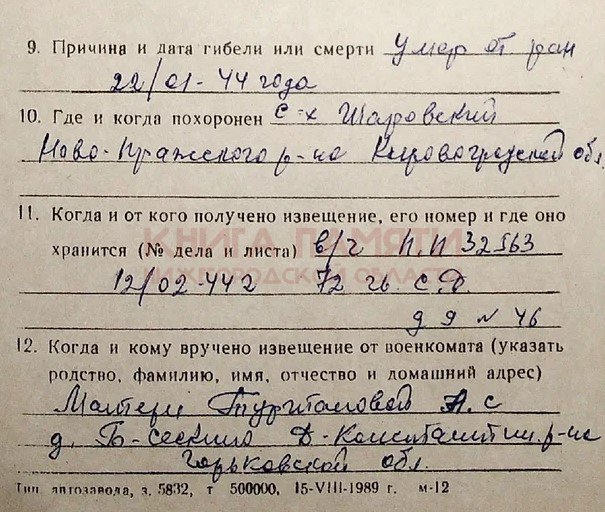 9. Причина и дата гибели или смерти умер от ран
22/01-44 года
10. Где и когда похоронен с-х Шаровский
Ново-Пражского р-на Кировоградской обл.
11. Когда и от кого получено извещение, его номер и где оно
хранится (№ дела и листа) в/ч п.п 32563
КНИГА ПАМЯТИ
НИЖГОРОДСКОЙ ОБЛАСТИ
12/02-442 72 гв. с.д.
д 9 N 46
12. Когда и кому вручено извещение от военкомата (указать
родство, фамилию, имя, отчество и домашний адрес)
Матери А. с
д. Б- Д-Константин. р-на
Горьковской обл.
Тип. автозавода, з. 5832, т 500000, 15-VIII-1989 г. м-12